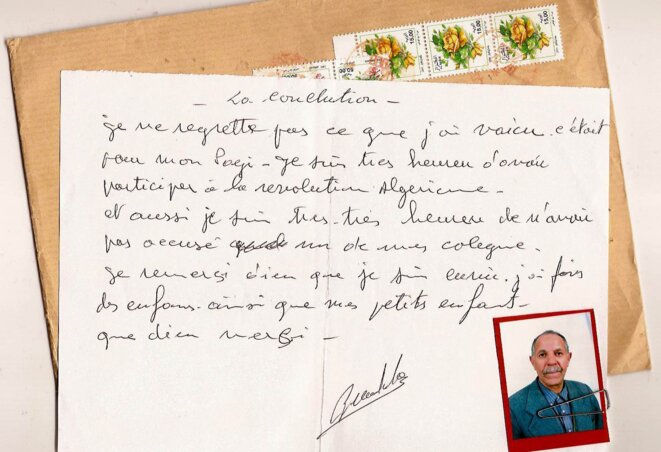 - La conclution -
je ne regrette pas ce que j'ai vaicu. c'était
pour mon Pagi - Je suis tres heureu d'avoir
participer à la revolution Algérienne -
et aussi je suis tres-très heureu de n'avoir
pas accusé un de mes colegue.
Je remerçi dieu que je suis envie. j'ai fais
des enfans. ainsi que mes petits enfant -
que dieu merçi -
15,00
15,00
15,00